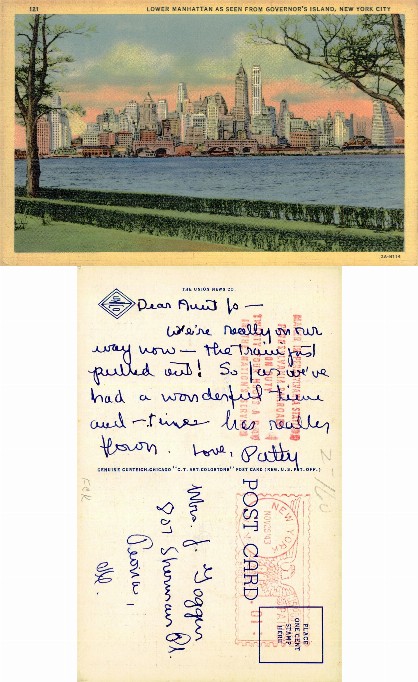 121
LOWER MANHATTAN AS SEEN FROM GOVERNOR'S ISLAND, NEW YORK CITY
3A-H114
THE UNION NEWS CO.
Dear Aunt Jo —
We're really on our
way now — the train just
pulled out! So far we've
had a wonderful time
and — time has really
flown. Love, Patty
GENUINE CURTEICH-CHICAGO "C.T. ART-COLORTONE" POST CARD (REG. U.S. PAT. OFF.)
POST CARD
PLACE
ONE CENT
STAMP
HERE
NEW YORK
NOV 25 '43
01
Mrs. J. Goggin
807 Sherman
Peoria,
Ill.